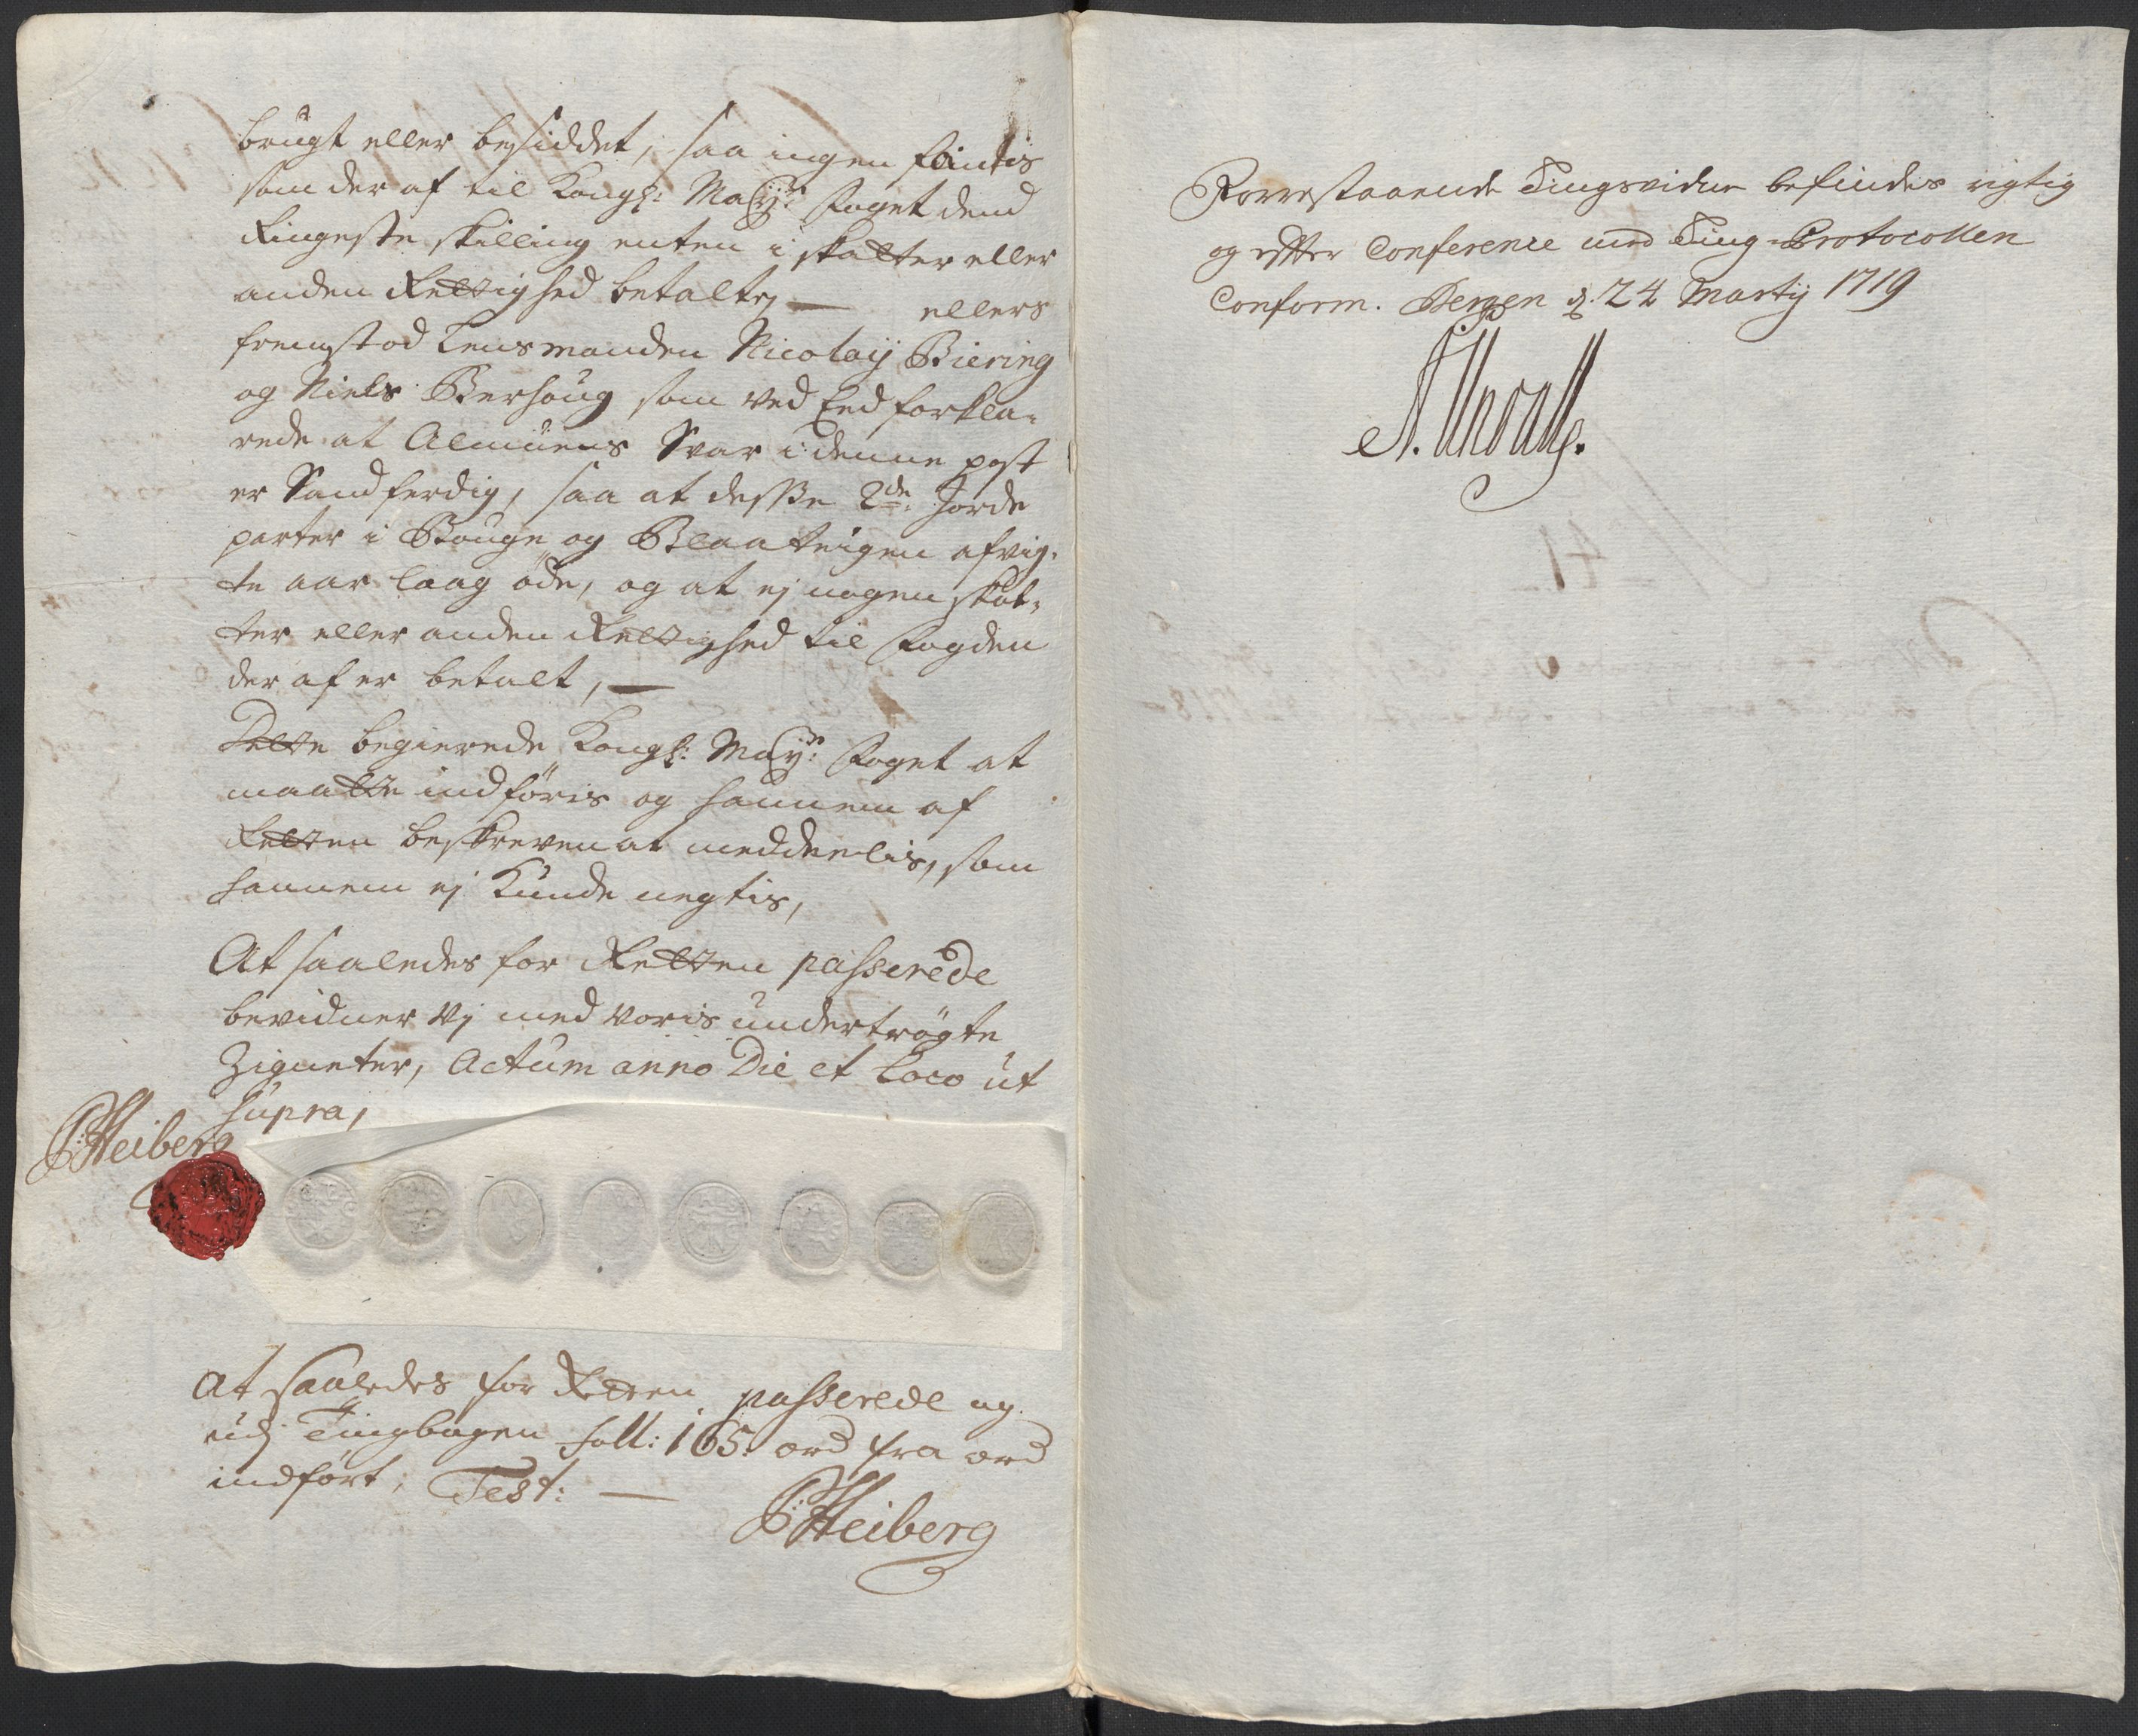 brugt eller besiddet, saa ingen findis
som der af til Kongl: May:ts foget dend
Ringeste skilling enten i skatter eller
anden Rettighed betalte, — ellers
fremstod Lensmanden Nicolaij Biering
og Niels Berhoug som ved Eed forkla-
rede at Almuens Svar i denne post
er Sandferdig, saa at desse 2de Jorde
parter i Houge og Blaateigen afvig-
te aar laag öde, og at ej nogen skat-
ter eller anden Rettighed til fogden
der af er betalt, —
Dette begierede Kongl: May:ts foget at
maatte indföris og hannem af
Retten beskreven at meddeelis, som
hannem ej kunde negtis,
At saaledes for Retten passerede
bevidner vj med voris undertrögte
Zigneter, Actum anno Die et Loco ut
supra,
Heiberg
At saaledes for Retten passerede og
udj Tingbogen foll: 165: ord fra ord
indfört, Test: —
Heiberg
Forrestaaende Tingsvidne befindes rigtig
og efter Conference med Ting-Protocollen
Conform. Bergen d. 24 Martij 1719